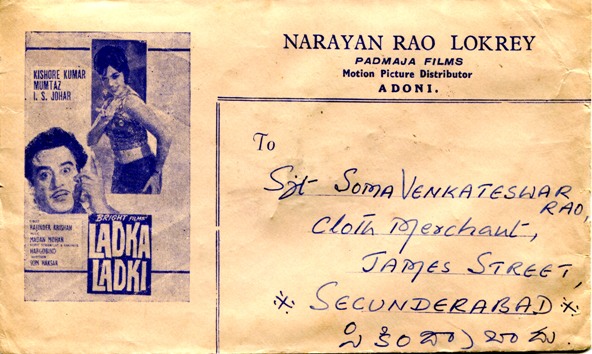 KISHORE KUMAR
MUMTAZ
I. S. JOHAR
BRIGHT FILMS'
LADKA
LADKI
RAJINDER KRISHAN
MADAN MOHAN
SOM HAKSAR
NARAYAN RAO LOKREY
PADMAJA FILMS
Motion Picture Distributor
ADONI.
To
Sjt SOMA VENKATESWAR
RAO,
Cloth Merchant,
JAMES STREET,
※ SECUNDERABAD ※